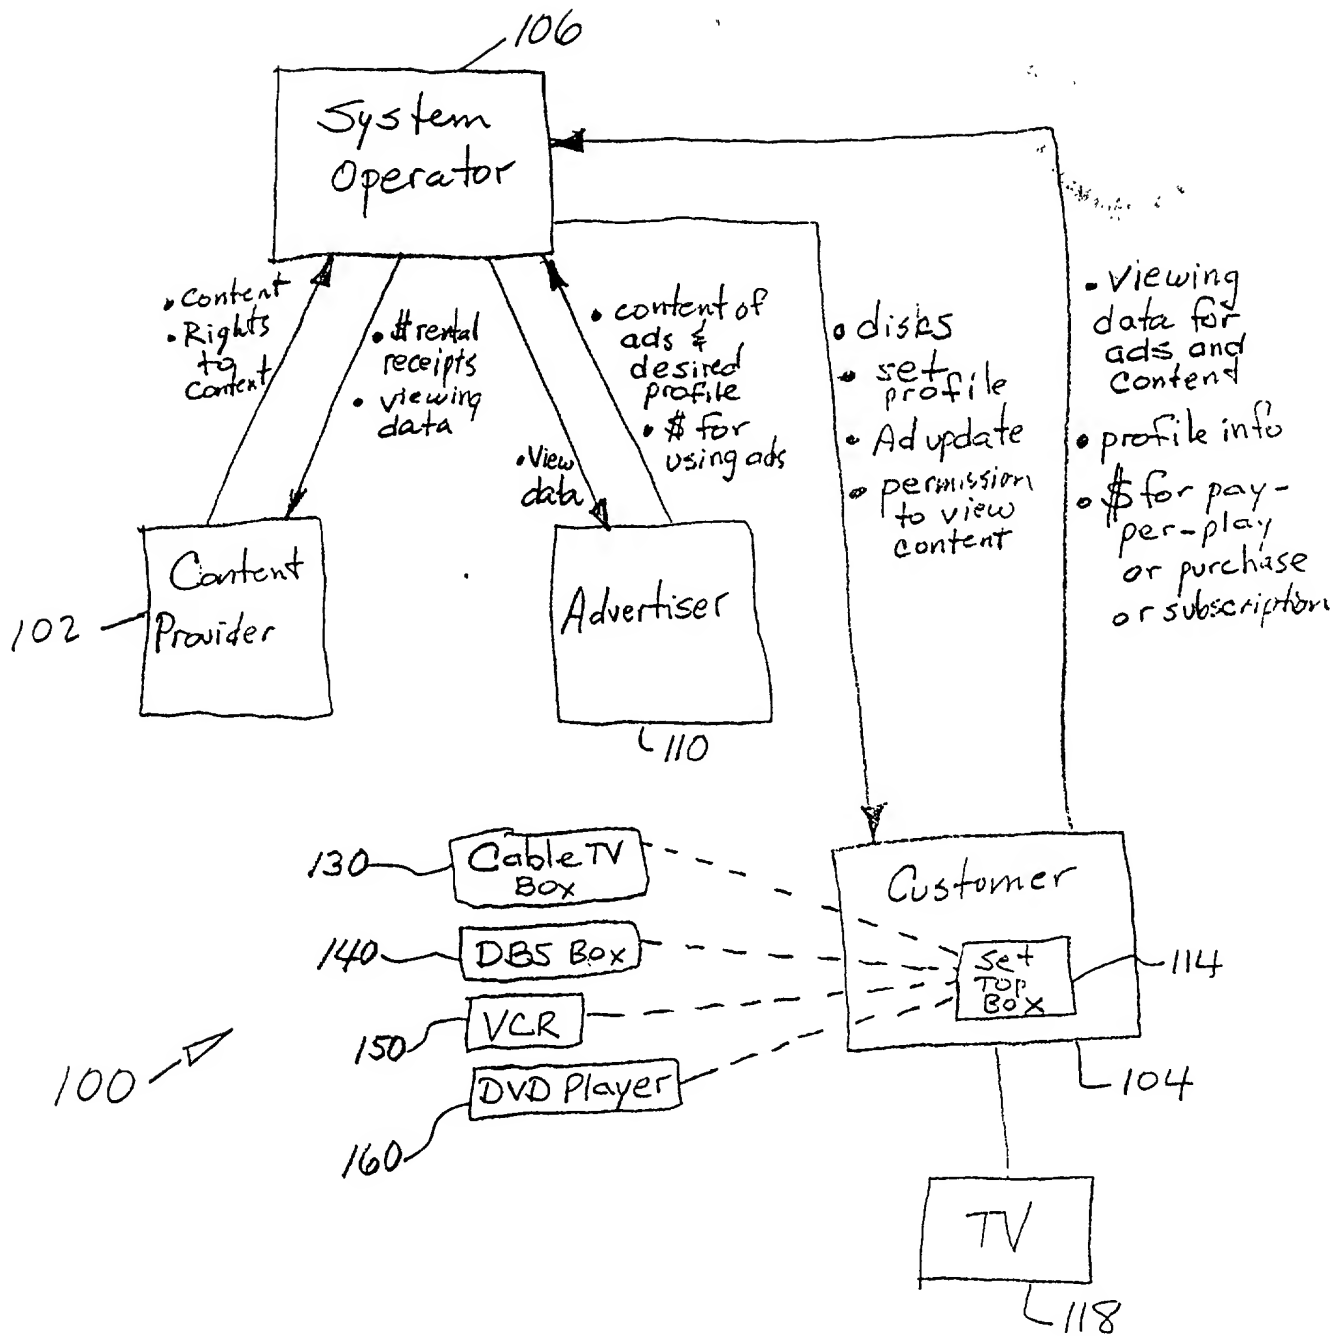 106
System
Operator
• Content
• Rights
to
Context
• $ rental
receipts
• viewing
data
• View
data
• content of
ads &
desired
profile
• $ for
using ads
• disks
• set
profile
• Ad update
• permission
to view
content
• Viewing
data for
ads and
content
• profile info
• $ for pay-
per-play
or purchase
or subscription
Content
Provider
102
Advertiser
110
130
Cable TV
Box
140
DBS Box
150
VCR
160
DVD Player
100
Customer
Set
TOP
BOX
114
104
TV
118